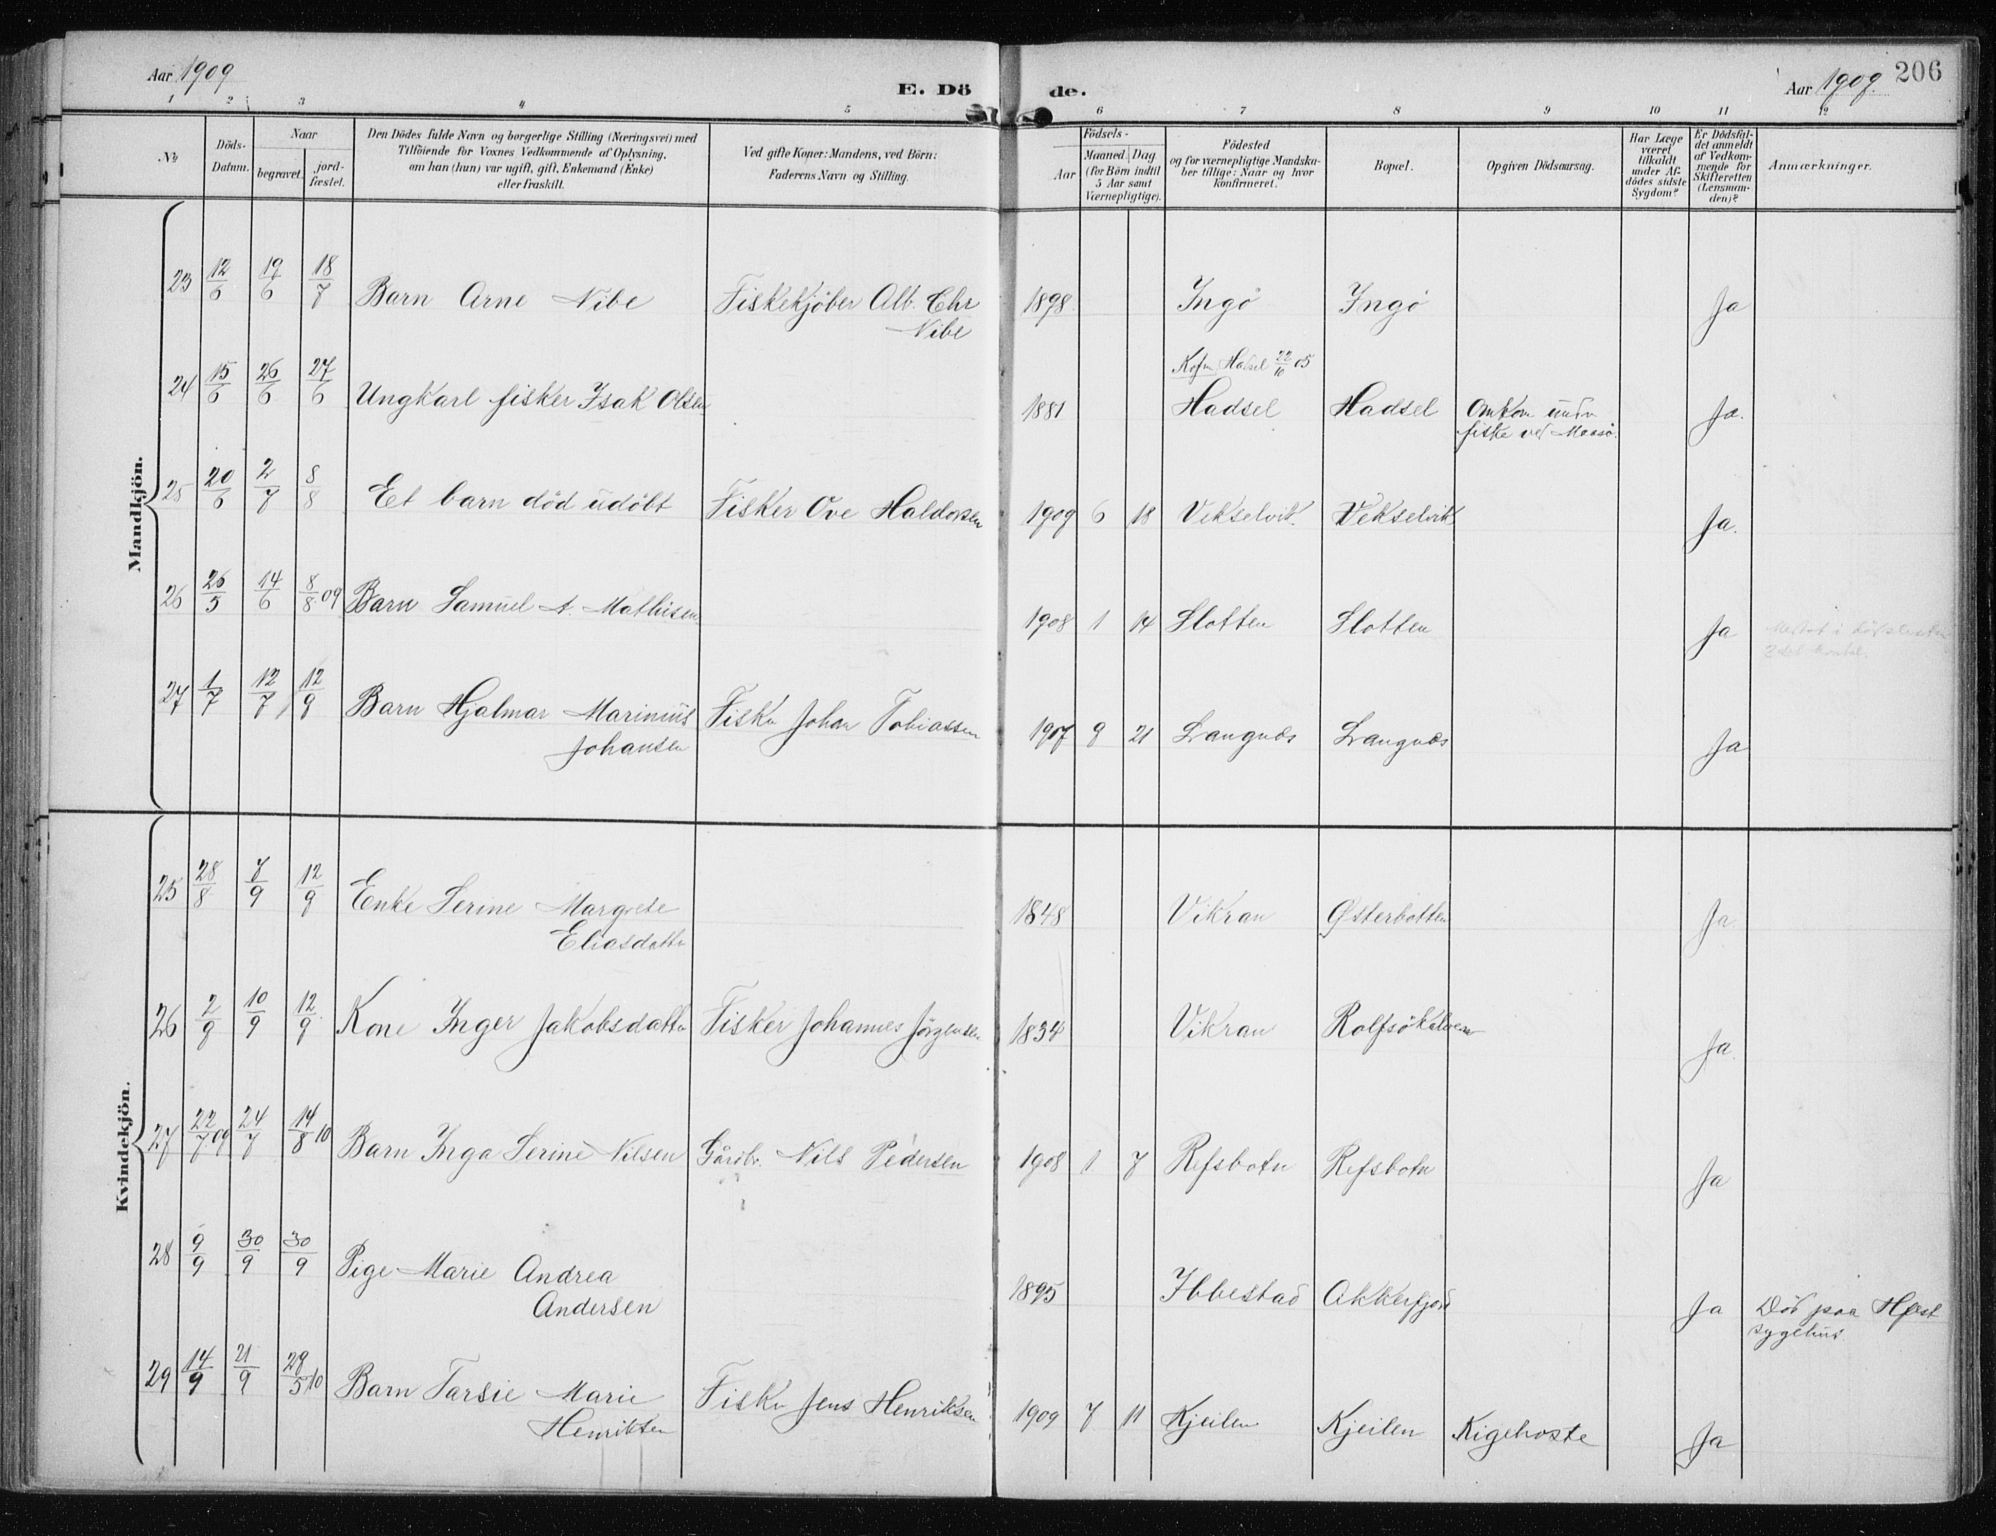 Aar 1909
E. Dö
de.
Aar 1909.
206
1 2 3 4 5 6 7 8 9 10 11 12
No
Döds-
Datum.
Naar
begravet.
jord-
fæstet.
Den Dödes fulde Navn og borgerlige Stilling (Næringsvei) med
Tilföiende for Voxnes Vedkommende af Oplysning,
om han (hun) var ugift, gift, Enkemand (Enke)
eller fraskilt.
Ved gifte Koner: Mandens, ved Börn:
Faderens Navn og Stilling.
Födsels-
Aar
Maaned Dag
(for Börn indtil
5 Aar samt
Værnepligtige).
Födested
og for værnepligtige Mandska-
ber tillige: Naar og hvor
konfirmeret.
Bopæl.
Opgiven Dödsaarsag.
Har Læge
været
tilkaldt
under Af-
dödes sidste
Sygdom?
Er Dödsfal-
det anmeldt
af Vedkom-
mende for
Skifteretten
(Lensman-
den)?
Anmærkninger.
Mandkjön.
23 12/6 19/6 18/7 Barn Arne Nibe Fiskekjöber Alb. Chr Nibe 1898 Ingö Ingö Ja
Kofm Hadsel 22/10 05
24 15/6 26/6 27/6 Ungkarl fisker Isak Olsen 1881 Hadsel Hadsel Omkom under fiske ved Maasö. Ja.
25 20/6 2/7 8/8 Et barn död udöbt Fisker Ove Haldorsen 1909 6 18 Vekselvik. Vekselvik Ja.
26 26/5 14/6 8/8 09 Barn Samuel A. Mathisen 1908 1 14 Slotten Slotten Ja
27 1/7 12/7 12/9 Barn Hjalmar Marinius Johansen Fisker Johan Tobiassen 1907 9 21 Langnæs Langnæs Ja
Kvindekjön.
25 28/8 7/9 12/9 Enke Serine Margrete Eliasdatter 1848 Vikran Østerbotten Ja.
26 2/9 10/9 12/9 Kone Inger Jakobsdatter Fisker Johannes Jörgensen 1834 Vikran Rolfsö Ja.
27 22/7 09 24/7 14/8 10 Barn Inga Serine Nilsen Gårdbr. Nils Pedersen 1908 1 7 Refsbotn Refsbotn Ja
28 9/9 30/9 30/9 Pige Marie Andrea Andersen 1895 Ibbestad Akkerfjord Ja Död paa Hfest sygehus
29 14/9 21/9 29/5 10 Barn Tarsie Marie Henriksen Fisker Jens Henriksen 1909 7 11 Kjeilen Kjeilen Kigehoste Ja